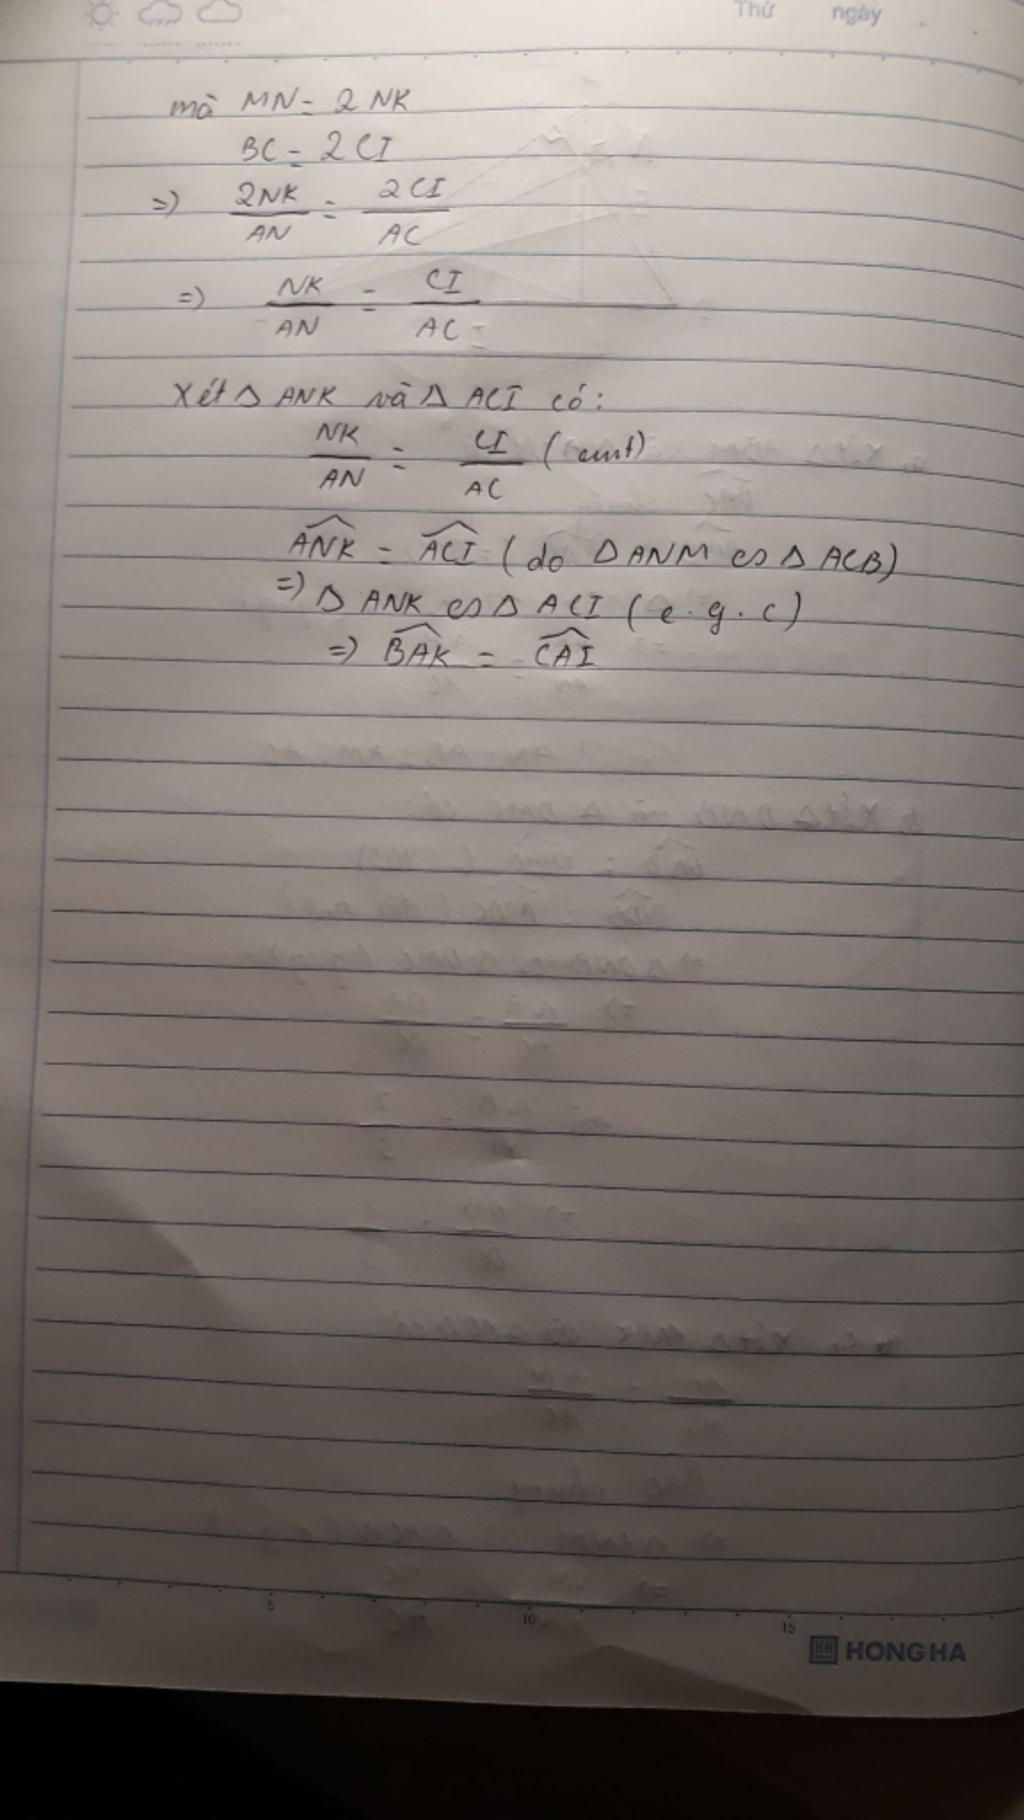 Thứ ngày
mà MN = 2 NK
BC = 2 CI
=> 2NK/AN = 2CI/AC
=> NK/AN = CI/AC
Xét Δ ANK và Δ ACI có:
NK/AN = CI/AC (cmt)
ANK = ACI (do Δ ANM ∽ Δ ACB)
=> Δ ANK ∽ Δ ACI (c.g.c)
=> BAK = CAI
5 10 15
HONG HA